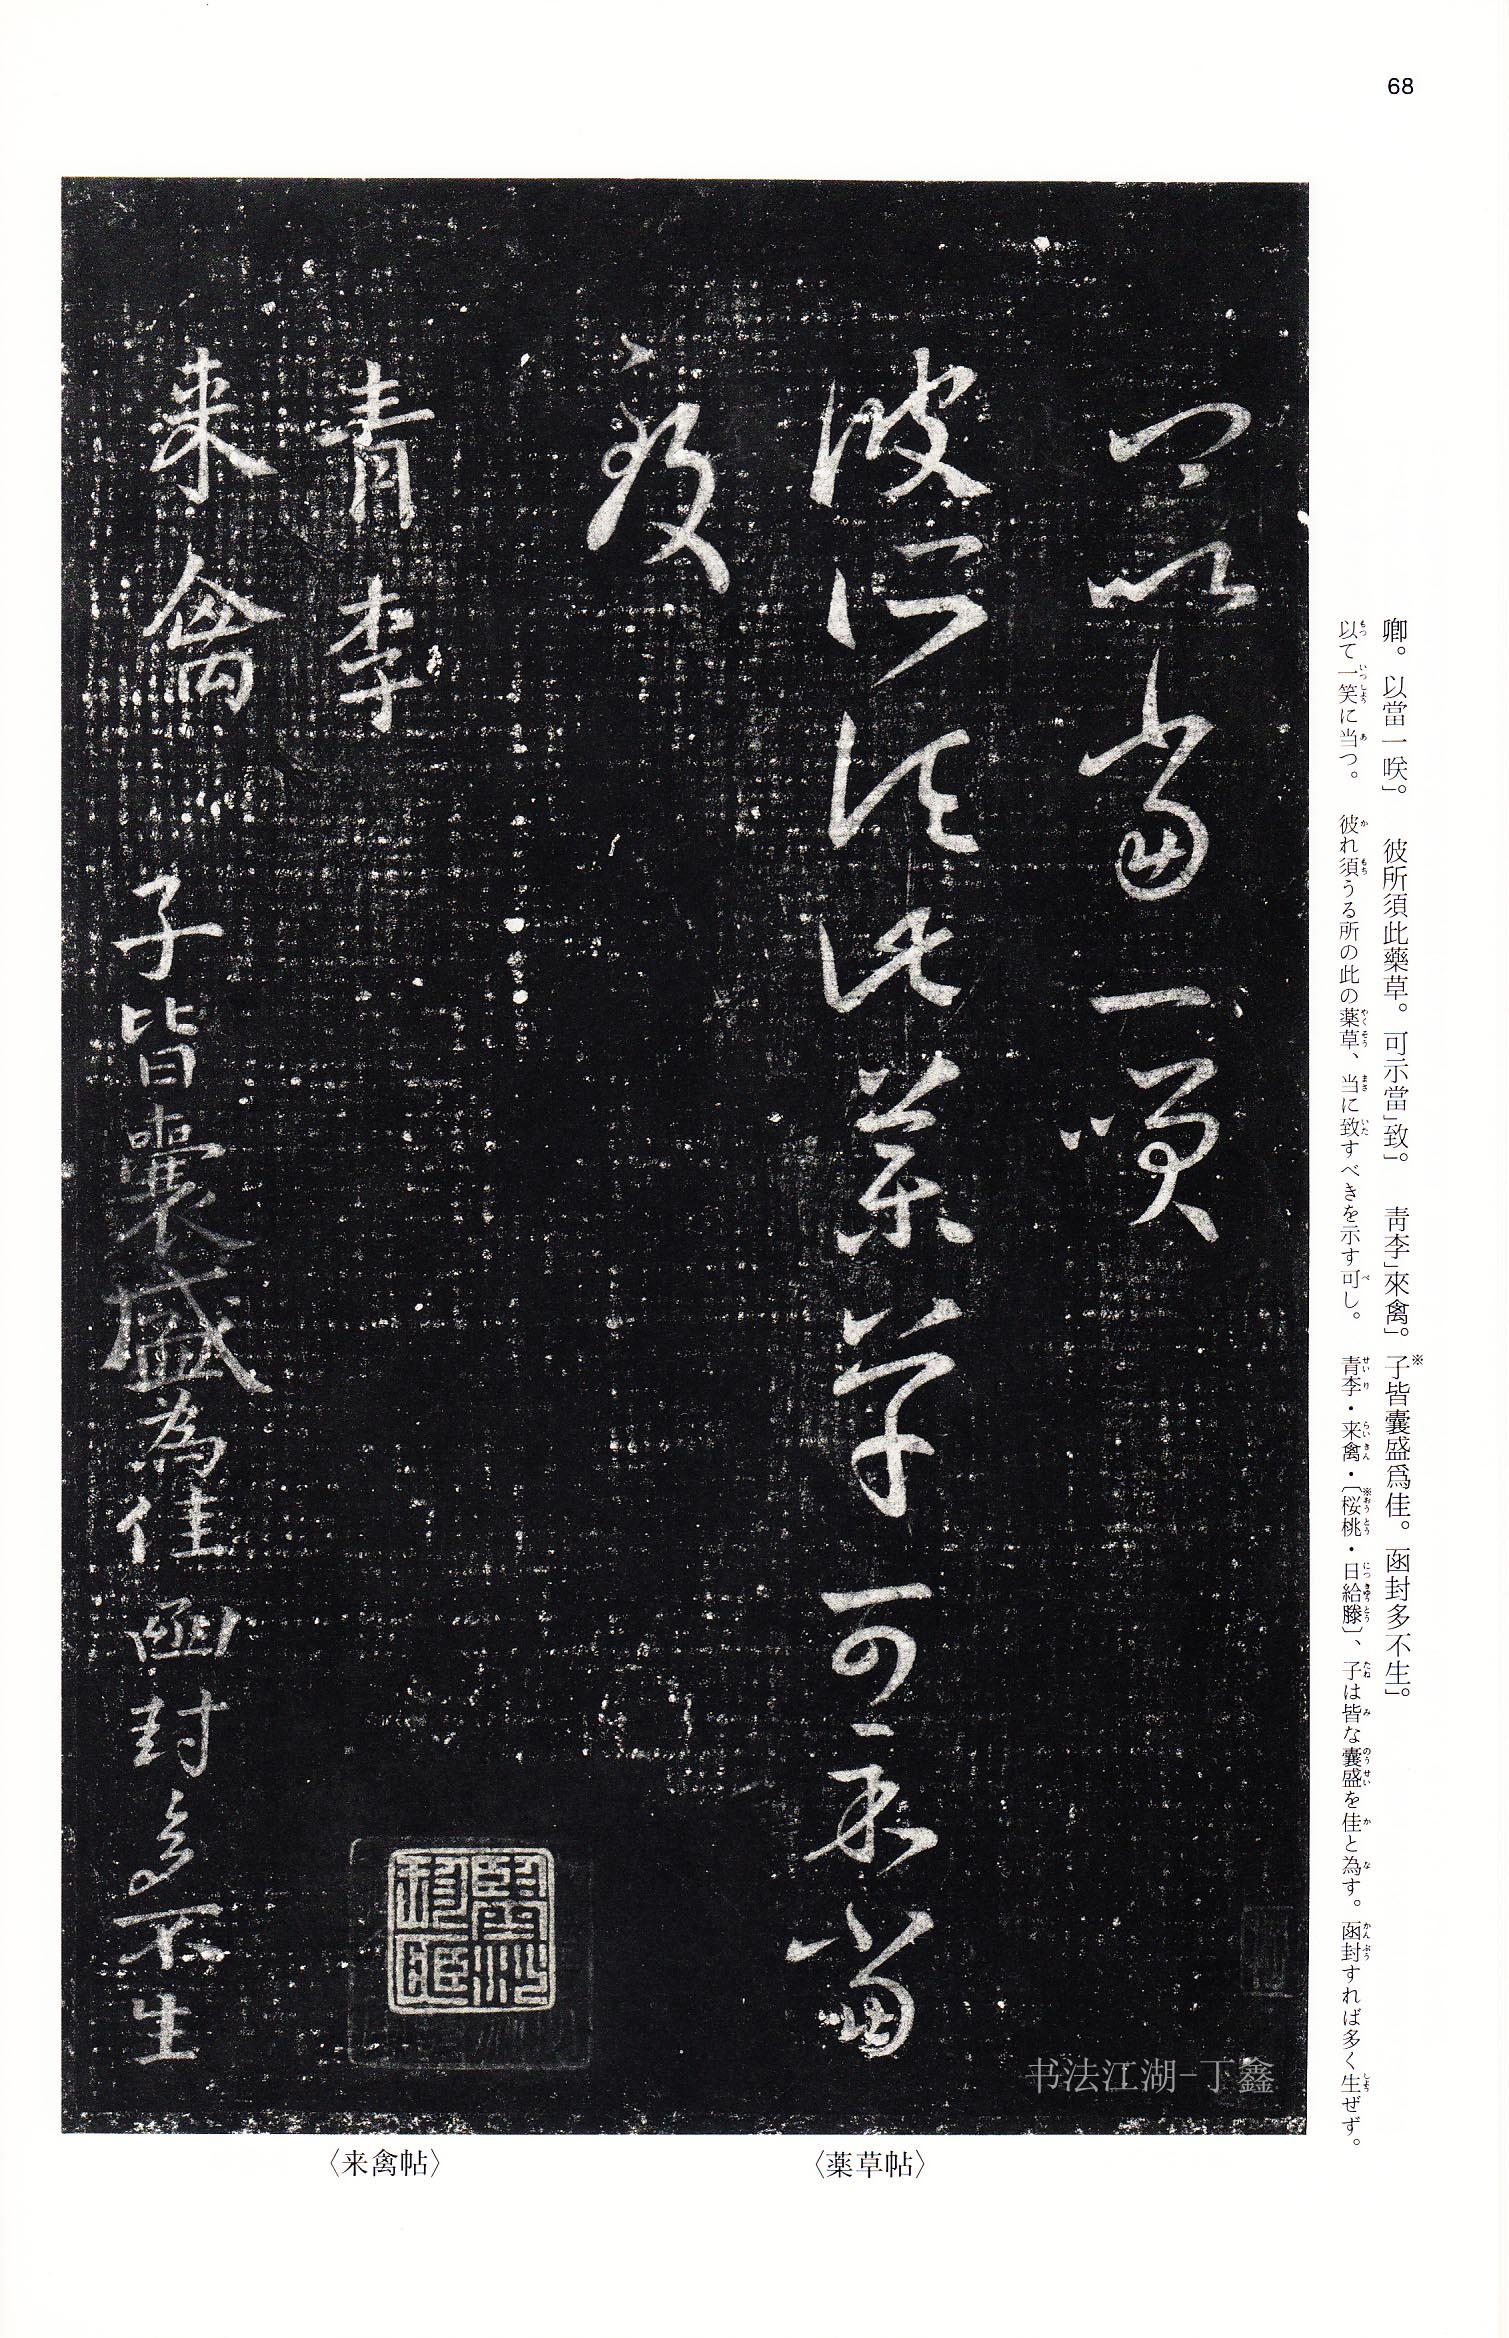 68
卿。以當一咲」。　彼所須此藥草。可示當」致」。　靑李」來禽」。※子皆囊盛爲佳。函封多不生」。
以て一笑に当つ。　彼れ須うる所の此の薬草、当に致すべきを示す可し。　青李・来禽・〔※桜桃・日給滕〕、子は皆な囊盛を佳と為す。函封すれば多く生ぜず。
卿以當一咲
彼所須此藥草可示當
致
青李
来禽
子皆囊盛為佳函封多不生
书法江湖-丁鑫
〈薬草帖〉
〈来禽帖〉